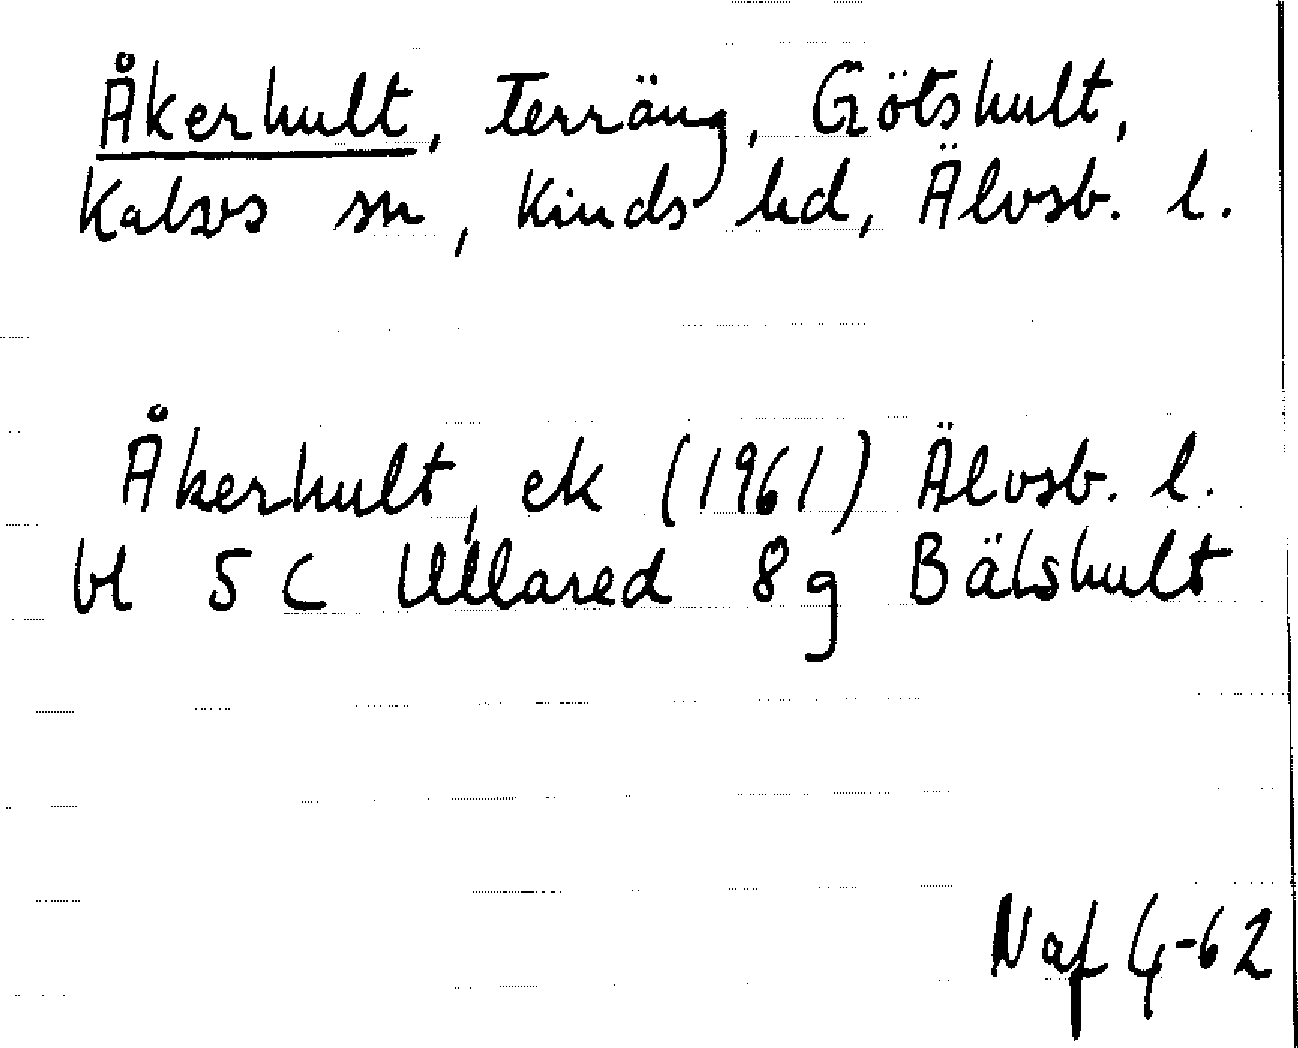 Åkerhult, Terräng, Götshult,
Kalvs sn, Kinds hd, Älvsb. l.
Åkerhult, ek (1961) Älvsb. l.
bl 5 C Ullared 8 g Bälshult
Naf 4-62